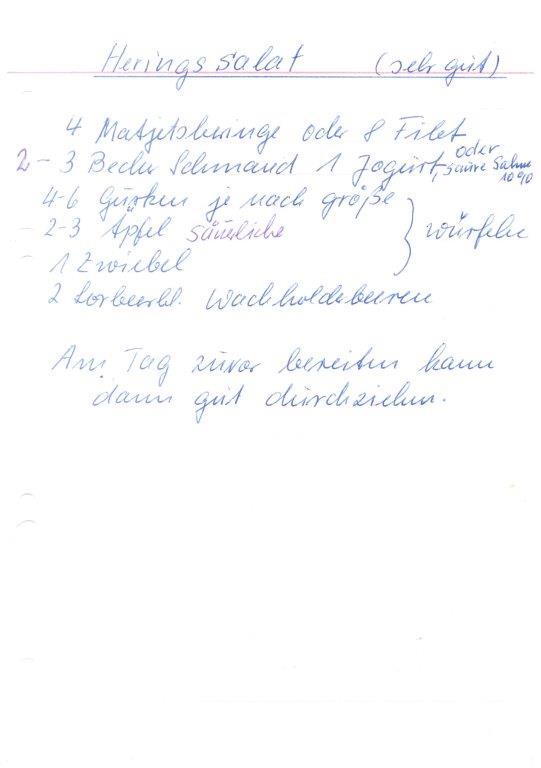 Heringssalat (sehr gut)
4 Matjesheringe oder 8 Filet
2-3 Becher Schmand 1 Jogurt, oder saure Sahne 10%
4-6 Gurken je nach größe
2-3 Äpfel säuerliche } würfeln
1 Zwiebel
2 Lorbeerbl. Wachholderbeeren
Am Tag zuvor bereiten kann
dann gut durchziehen.